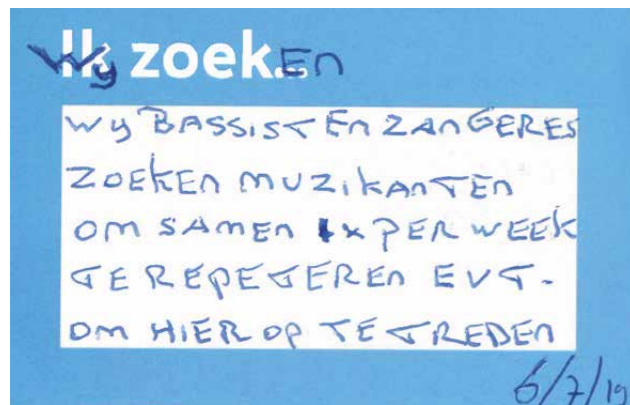 Wy zoek..En
Wy BASSIST En ZAnGERES
ZOEKEn MUZIKAnTEn
OM SAMEn 1x PER WEEK
TE REPETEREn EVT.
OM HIER OP TE TREDEn
6/7/19